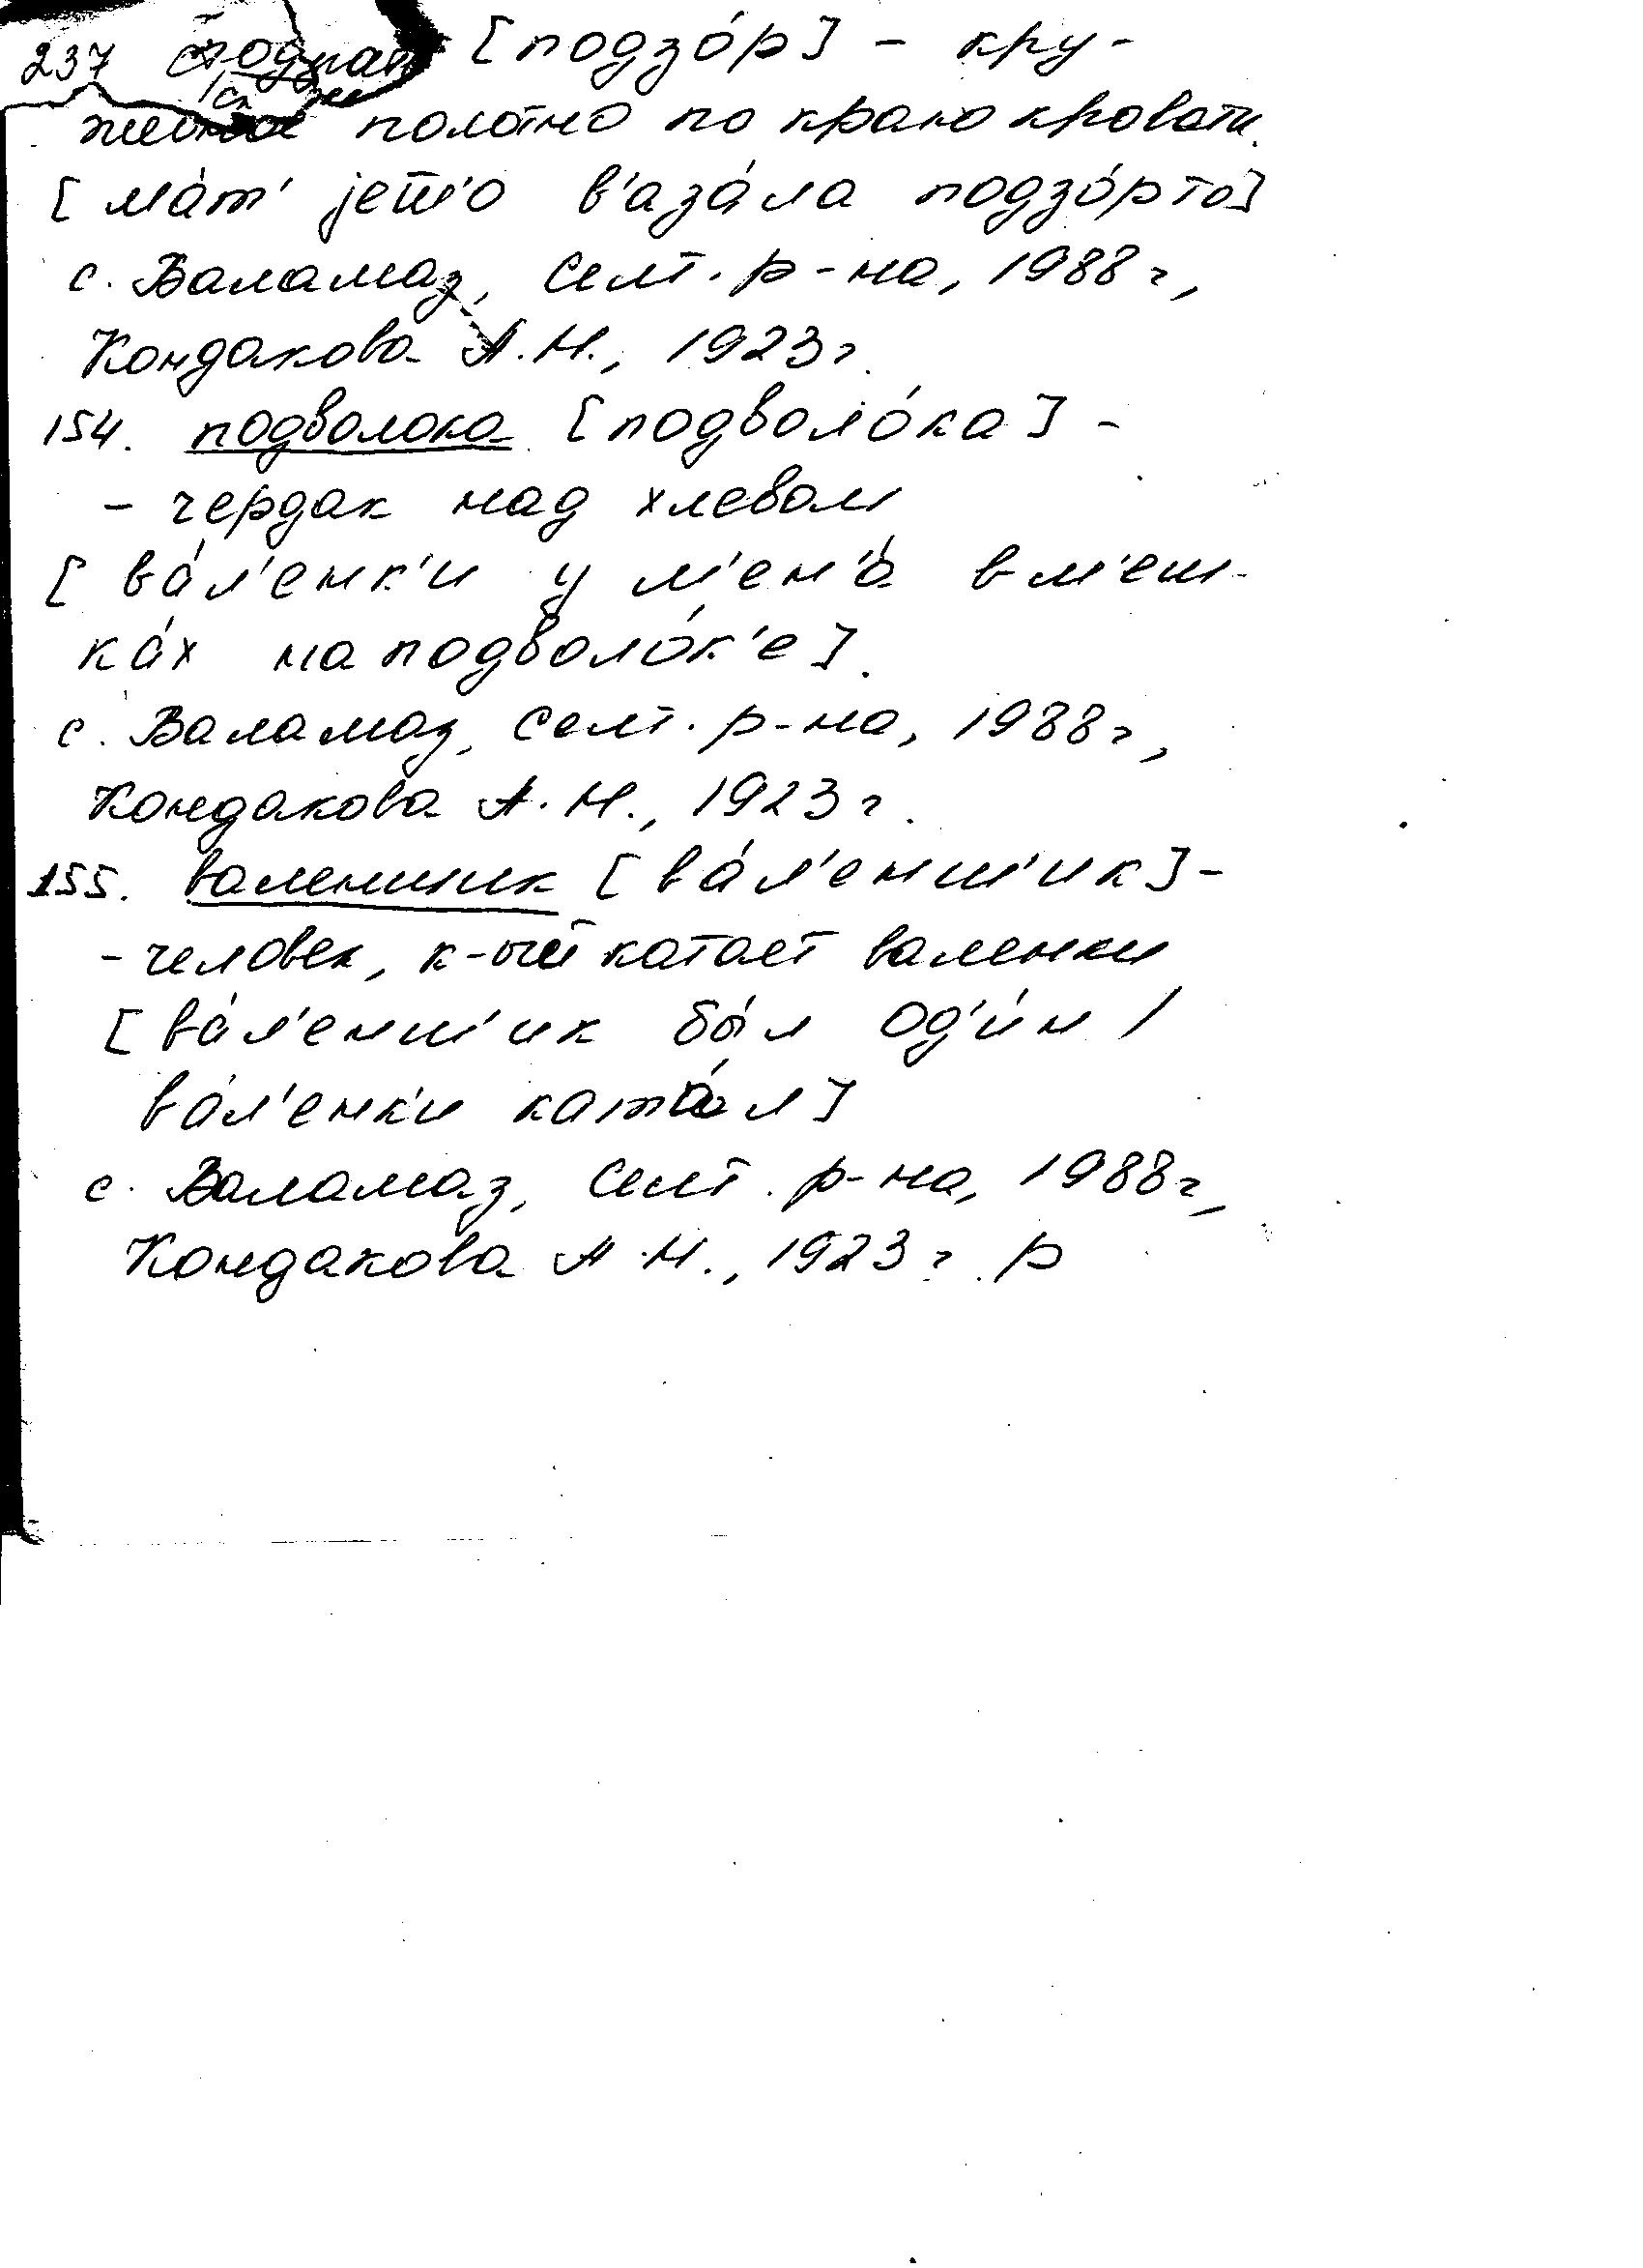 237 [подзо́р] - кру-
жевное полотно по краю кровати.
[ма́т' jещ'о в'аза́ла подзо́рто]
с. Валамаз, Селт. р-на, 1988 г,
Кондакова А.Н., 1923 г.
154. подволока [подволо́ка] -
- чердак над хлевом
[ва́л'енк'и у м'ен'а́ в м'еш-
ка́х на подволо́к'е].
с. Валамаз, Селт. р-на, 1988 г,
Кондакова А.Н., 1923 г.
155. валенщик [ва́л'енш'ик] -
- человек, к-ый катает валенки
[ва́л'енш'ик бы́л од'и́н /
ва́л'енк'и ката́л]
с. Валамаз, Селт. р-на, 1988 г,
Кондакова А.Н., 1923 г. р